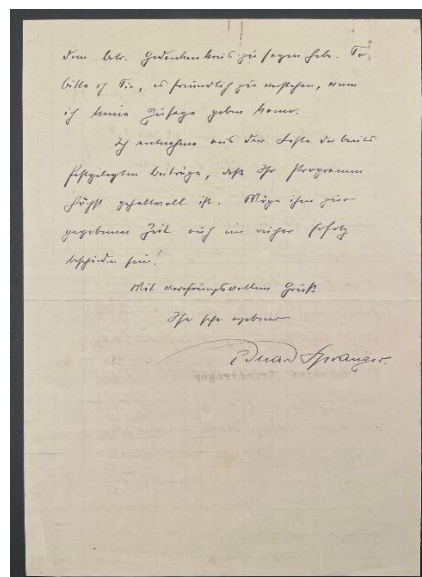 dem betr. Gedankenkreis zu sagen habe. So
bitte ich Sie, es freundlich zu verstehen, wenn
ich keine Zusage geben kann.
Ich entnehme aus der Liste der bereits
festgelegten Beiträge, daß Ihr Programm
höchst gehaltvoll ist. Möge ihm zur
gegebenen Zeit auch ein Erfolg
beschieden sein!
Mit verehrungsvollem Gruß
Ihr sehr ergebener
Eduard Spranger.